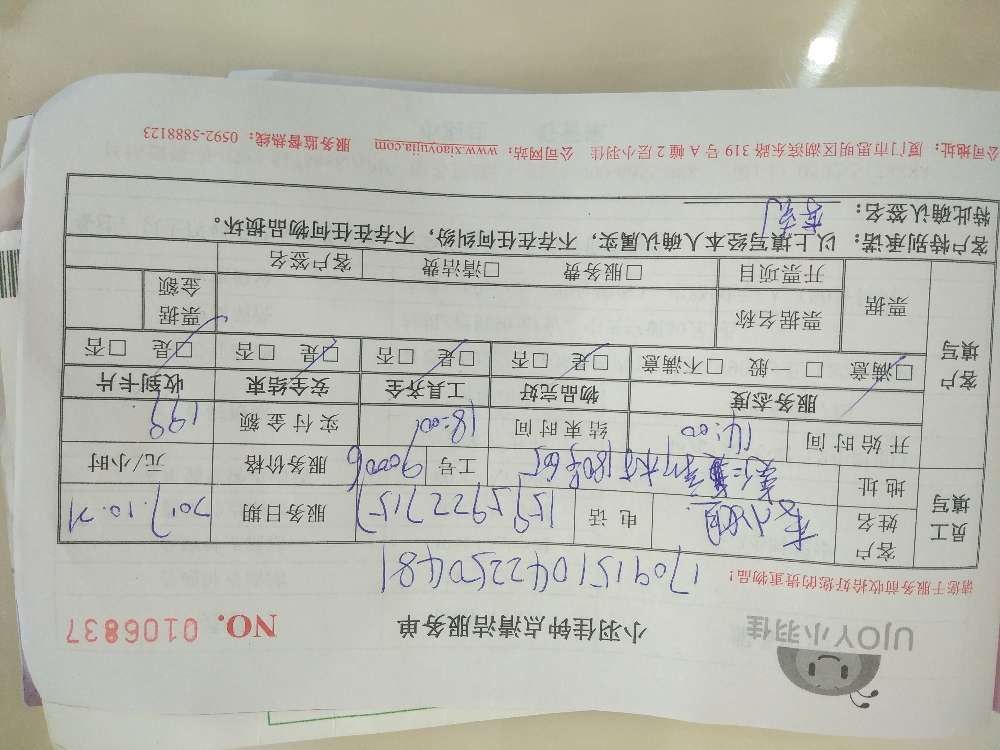 UJOY小羽佳 小羽佳钟点清洁服务单 NO. 0106837
请您于服务前收拾好您的贵重物品!
170915104225048
员工填写 客户姓名 电话 服务日期 2017.10.21
地址 工号 90006 服务价格 元/小时
开始时间 14:00 结束时间 18:00 实付金额 199
客户填写 服务态度 物品完好 工具齐全 安全结束 收到卡片
□满意 □一般 □不满意 □是 □否 □是 □否 □是 □否 □是 □否
票据 票据名称 票据金额
开票项目 □服务费 □清洁费 客户签名
客户特别承诺:以上填写经本人确认属实,不存在任何纠纷,不存在任何物品损坏。
特此确认签名:
公司地址:厦门市思明区湖滨东路319号A幢2层小羽佳 公司网站:www.xiaoyujia.com 服务监督热线:0592-5888123